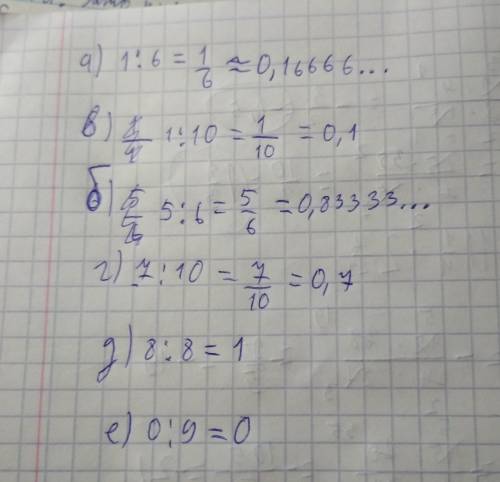 а) 1:6 = 1/6 ≈ 0,16666...
в) 1:10 = 1/10 = 0,1
б) 5:6 = 5/6 = 0,83333...
г) 7:10 = 7/10 = 0,7
д) 8:8 = 1
е) 0:9 = 0